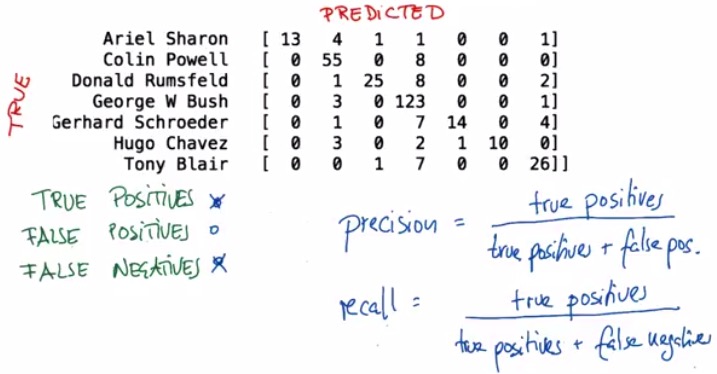 PREDICTED
TRUE
Ariel Sharon [ 13 4 1 1 0 0 1]
Colin Powell [ 0 55 0 8 0 0 0]
Donald Rumsfeld [ 0 1 25 8 0 0 2]
George W Bush [ 0 3 0 123 0 0 1]
Gerhard Schroeder [ 0 1 0 7 14 0 4]
Hugo Chavez [ 0 3 0 2 1 10 0]
Tony Blair [ 0 0 1 7 0 0 26]]
TRUE POSITIVES
FALSE POSITIVES
FALSE NEGATIVES
precision = true positives
true positives + false pos.
recall = true positives
true positives + false negatives